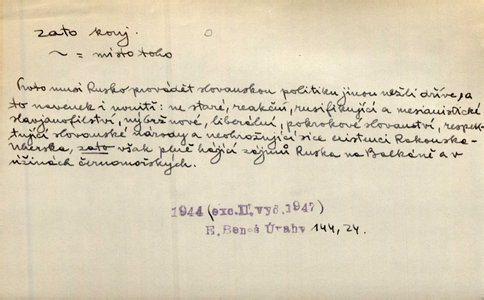 zato konj.
~ = místo toho
Proto musí Rusko provádět slovanskou politiku jinou nežli dříve, a
to navenek i uvnitř: ne staré, reakční, rusifikující a mesianistické
slavjanofilství, nýbrž nové, liberální, pokrokové slovanství, respek-
tující slovanské národy a neohrožující sice existenci Rakouska-
Uherska, zato však plně hájící zájmů Ruska na Balkáně a v
úžinách černomořských.
1944 (exc.II.vyd.1947)
E. Beneš Úvahy 144, 24.